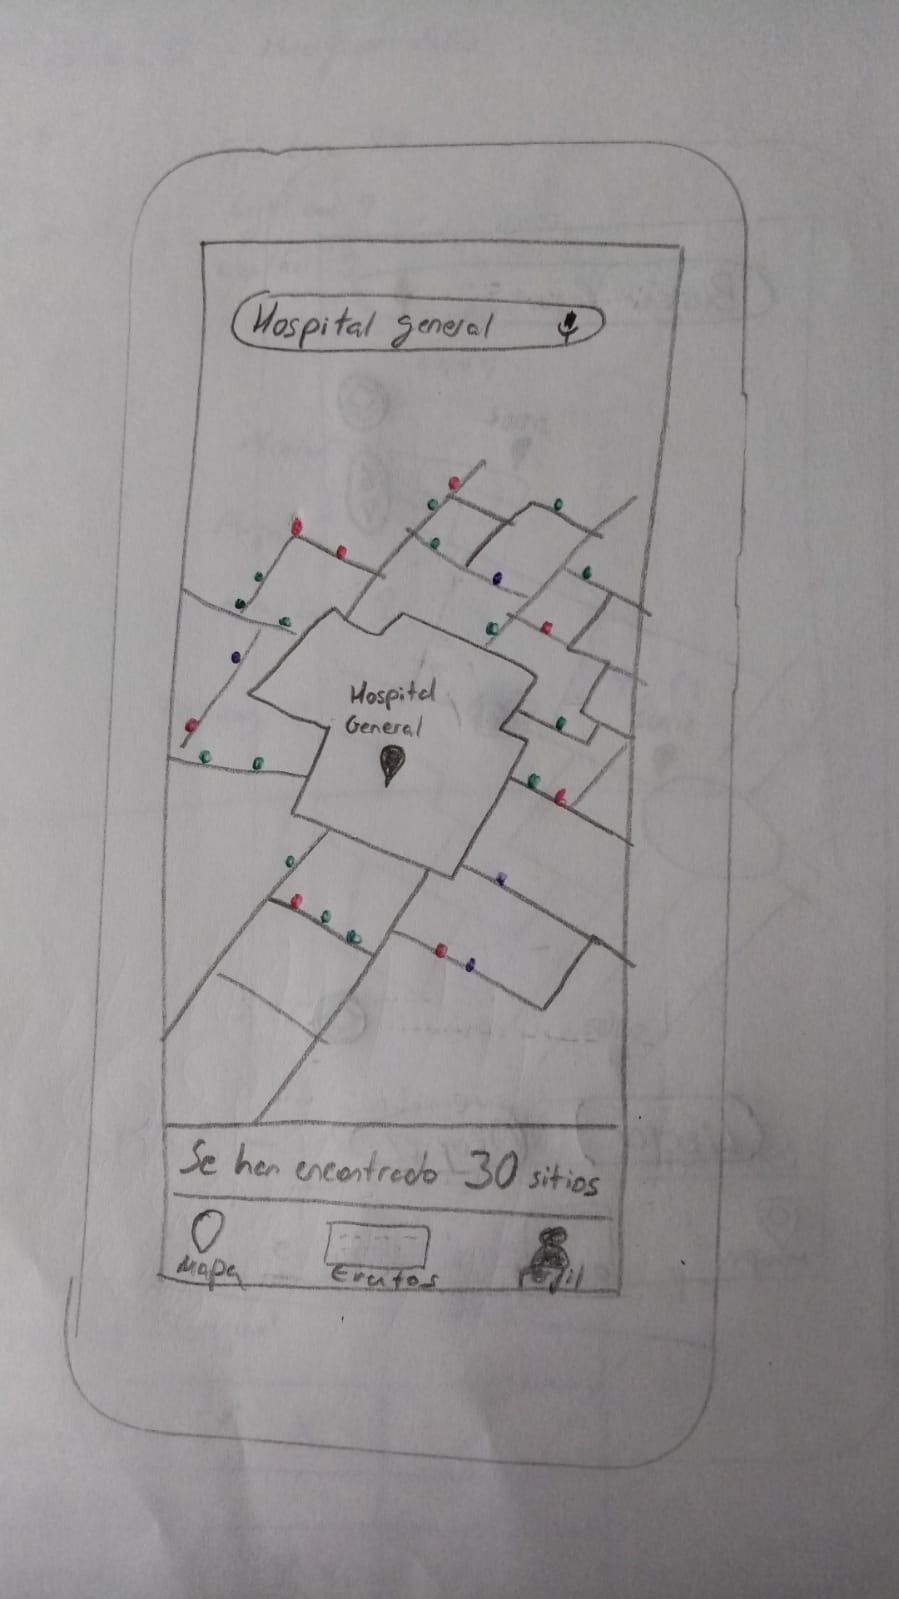 Hospital general
Hospital
General
Se han encontrado 30 sitios
Mapa
Perfil